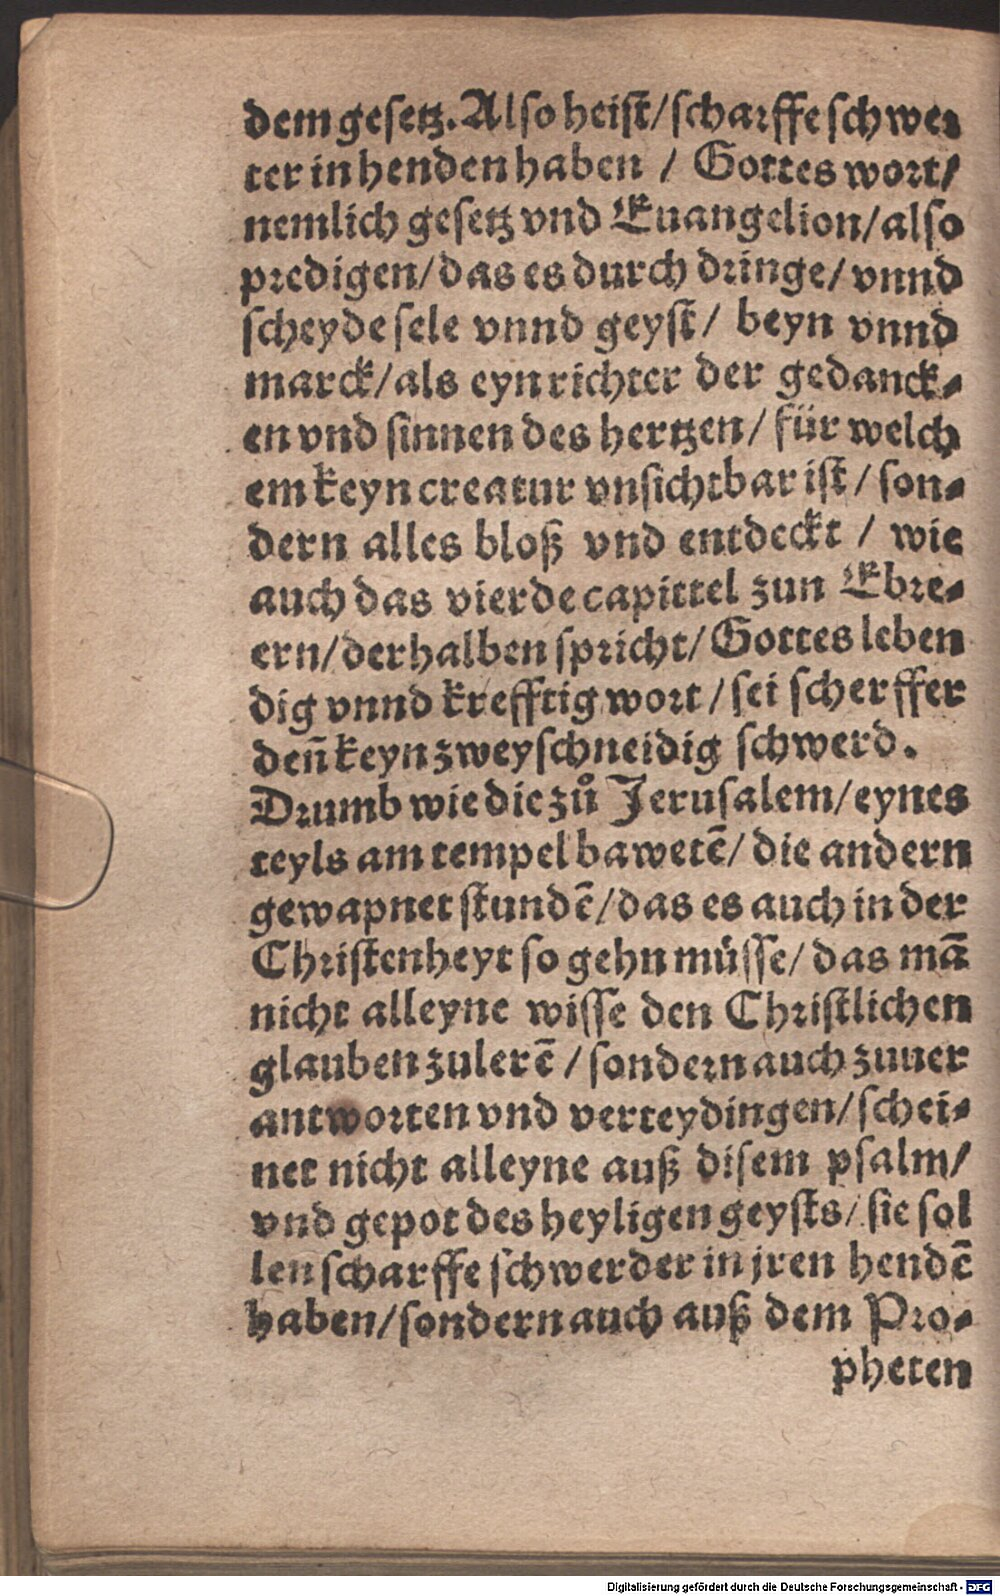 dem gesetz. Also heist/scharffe schwer⸗
ter in henden haben / Gottes wort/
nemlich gesetz vnd Euangelion/also
predigen/das es durch dringe/vnnd
scheyde sele vnnd geyst/ beyn vnnd
marck/als eyn richter der gedanck⸗
en vnd sinnen des hertzen/für welch
em keyn creatur vnsichtbar ist/son⸗
dern alles bloß vnd entdeckt / wie
auch das vierde capittel zun Ebre⸗
ern/derhalben spricht/Gottes leben
dig vnnd krefftig wort/sei scherffer
deñ keyn zweyschneidig schwerd.
Drumb wie die zů Jerusalem/eynes
teyls am tempel bawetē/die andern
gewapnet stundē/das es auch in der
Christenheyt so gehn müsse/das mā
nicht alleyne wisse den Christlichen
glauben zulerē/sondern auch zuuer
antworten vnd verteydingen/schei⸗
net nicht alleyne auß disem psalm/
vnd gepot des heyligen geysts/sie sol
len scharffe schwerder in jren hendē
haben/sondern auch auß dem Pro⸗
pheten
Digitalisierung gefördert durch die Deutsche Forschungsgemeinschaft - DFG